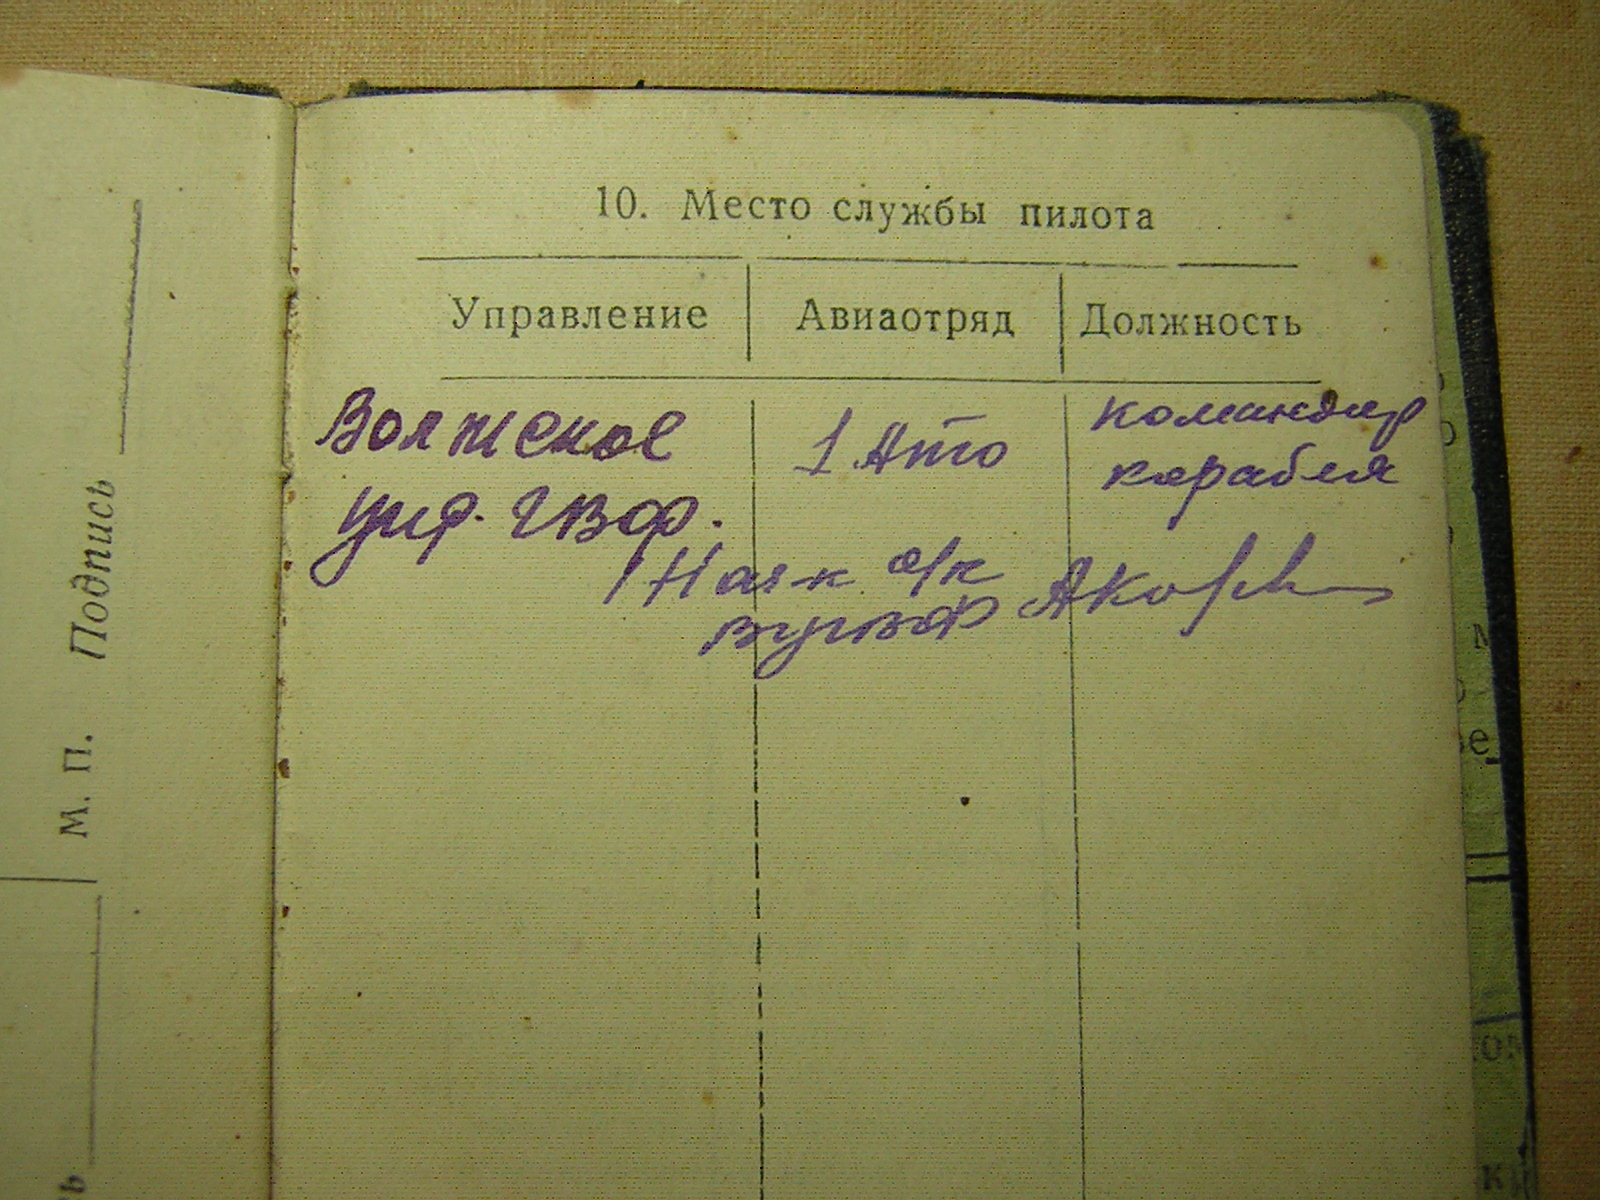 10. Место службы пилота
Управление Авиаотряд Должность
Волжское 1 Ато командир
упр. ГВФ. корабля
Нач-к о/к
ВУГВФ
М. П. Подпись